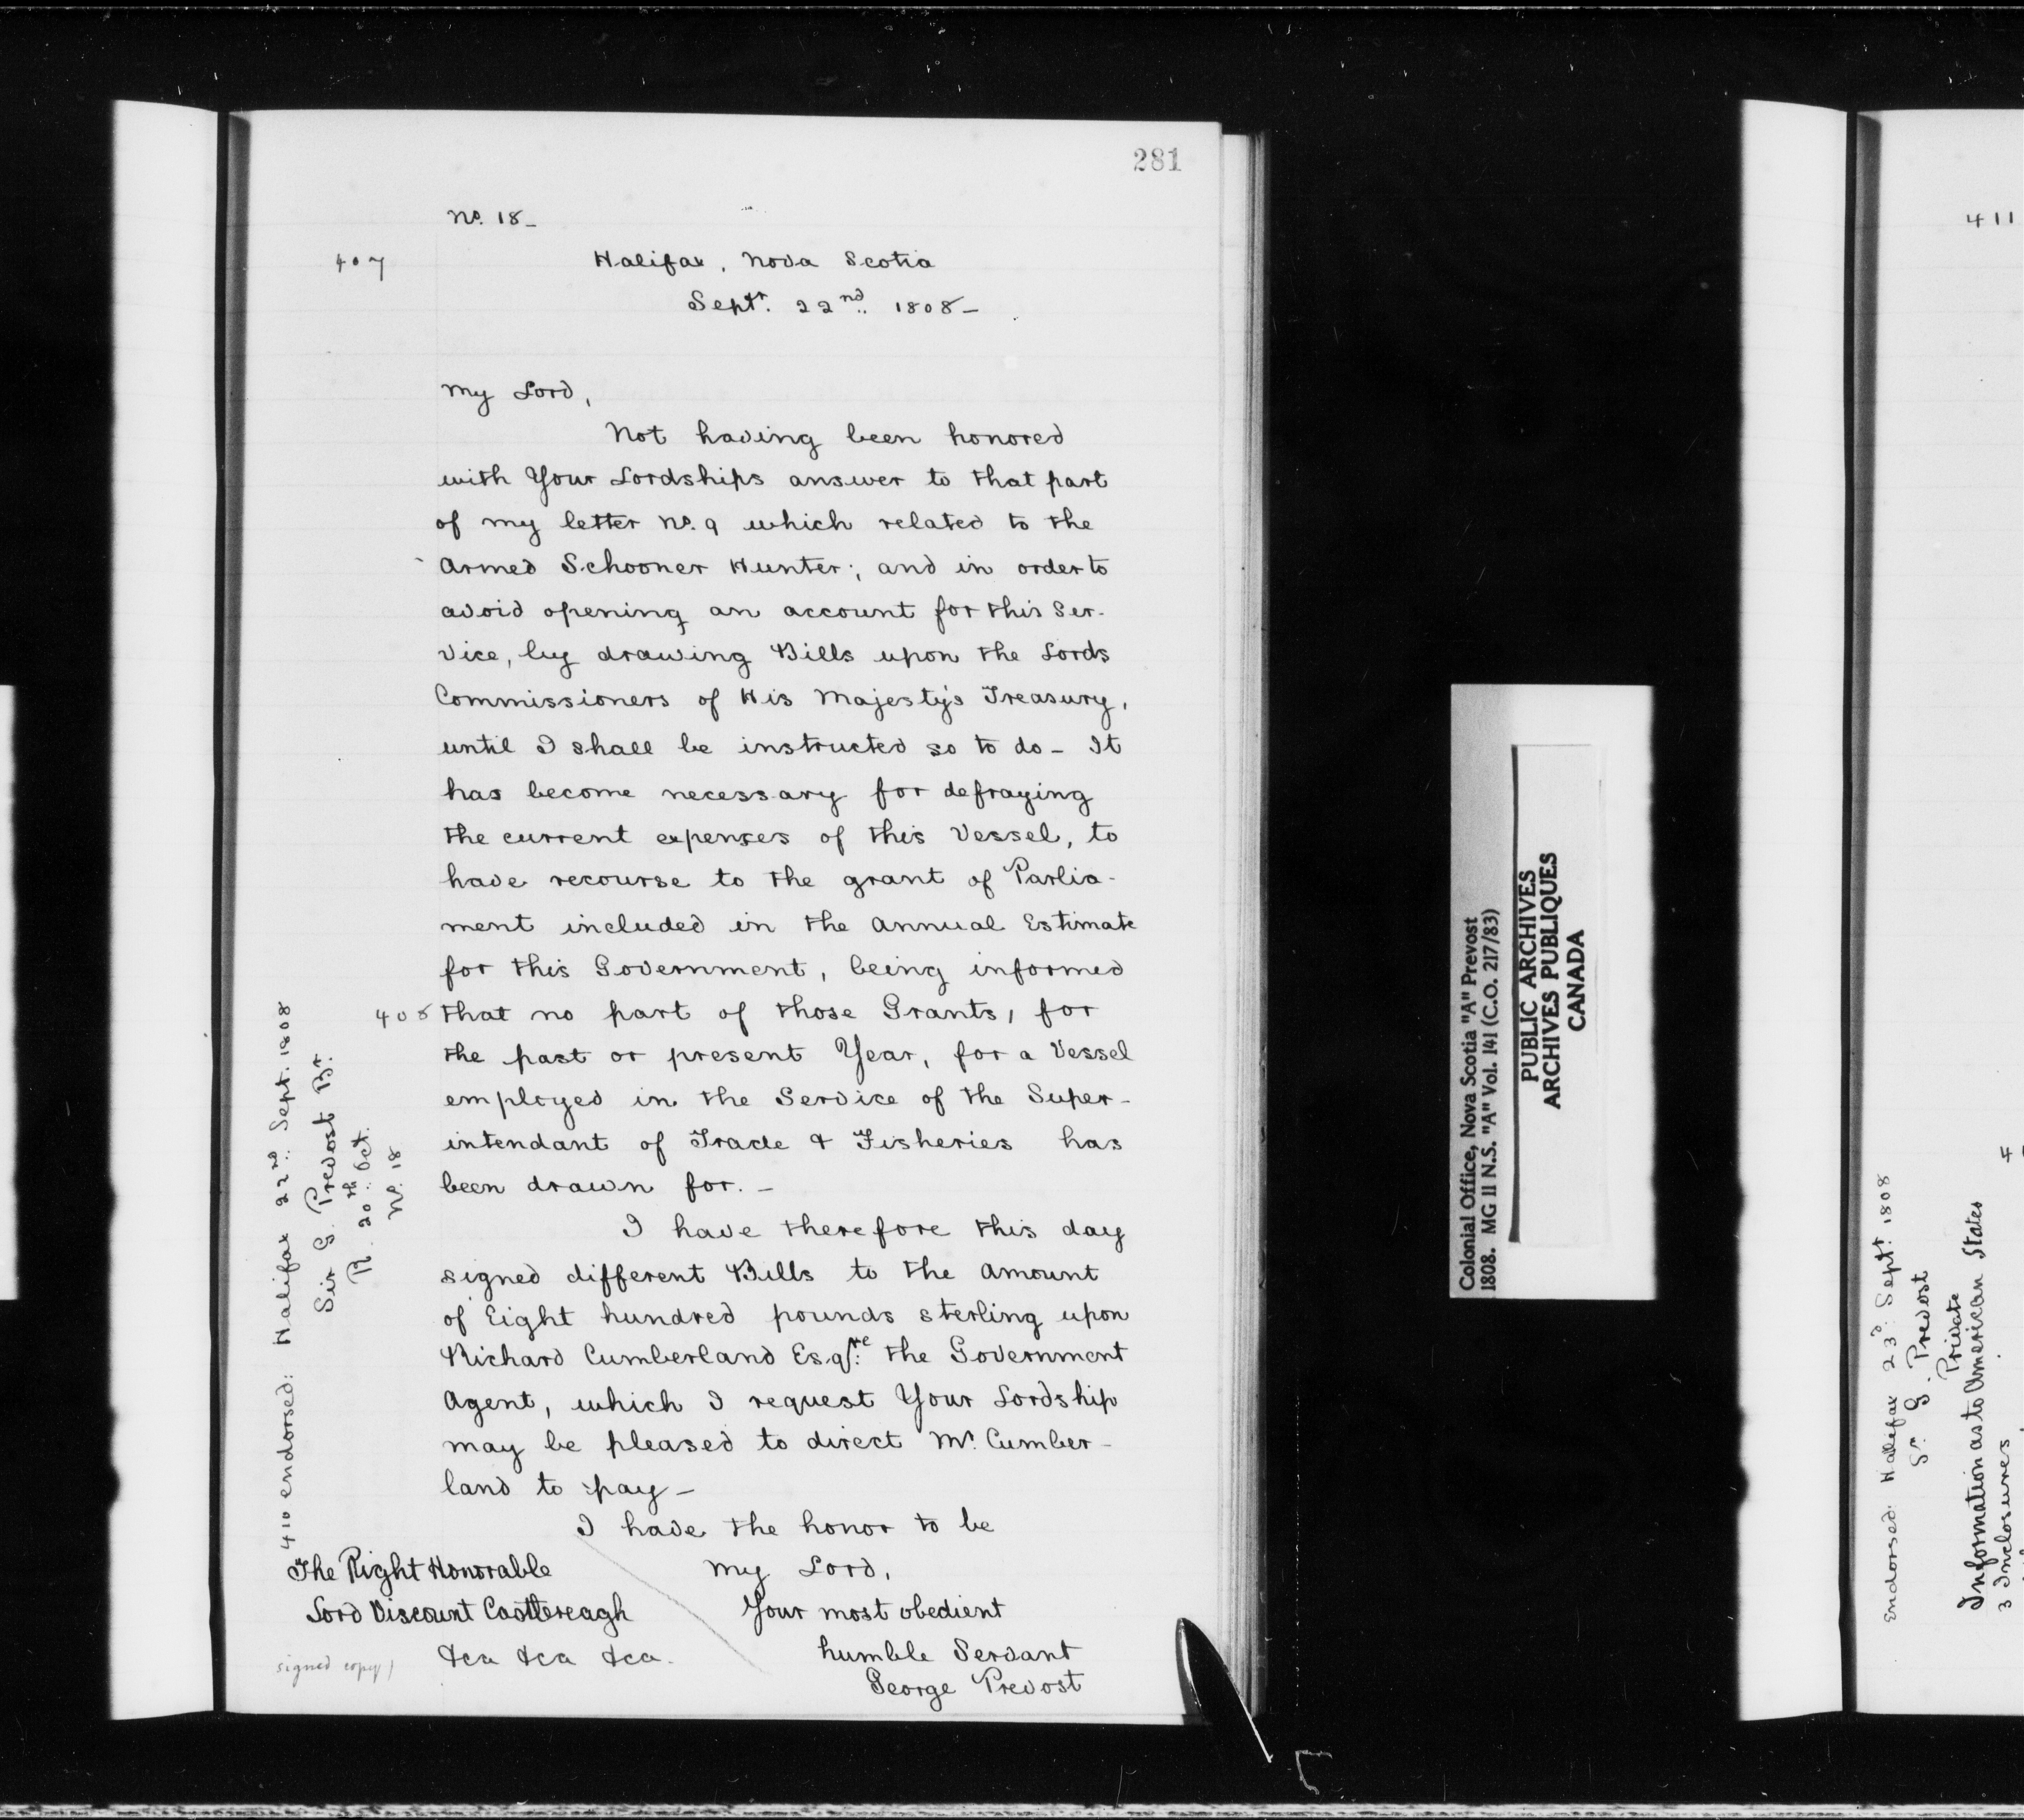 281
No. 18_
407
Halifax, Nova Scotia
Septr. 22nd. 1808_
My Lord,
Not having been honored
with Your Lordships answer to that part
of my letter No. 9 which related to the
Armed Schooner Hunter; and in order to
avoid opening an account for this Ser-
vice, by drawing Bills upon the Lords
Commissioners of His Majesty's Treasury,
until I shall be instructed so to do_ It
has become necessary for defraying
the current expenses of this Vessel, to
have recourse to the grant of Parlia-
ment included in the Annual Estimate
for this Government, being informed
408 that no part of those Grants, for
the past or present Year, for a Vessel
employed in the Service of the Super-
intendant of Trade & Fisheries has
been drawn for._
I have therefore this day
signed different Bills to the Amount
of Eight hundred pounds sterling upon
Richard Cumberland Esqre. the Government
Agent, which I request Your Lordship
may be pleased to direct Mr. Cumber-
land to pay_
I have the honor to be
My Lord,
Your most obedient
humble Servant
George Prevost
The Right Honorable
Lord Viscount Castlereagh
&ca &ca &ca.
signed copy)
410 endorsed: Halifax 22nd. Sept. 1808
Sir G. Prevost Bt.
R. 20th. Oct.
No. 18
Colonial Office, Nova Scotia "A" Prevost
1808. MG 11 N.S. "A" Vol. 141 (C.O. 217/83)
PUBLIC ARCHIVES
ARCHIVES PUBLIQUES
CANADA
411
Endorsed: Halifax 23d. Sept. 1808
Sr. G. Prevost
Private
Information as to American States
3 Inclosures